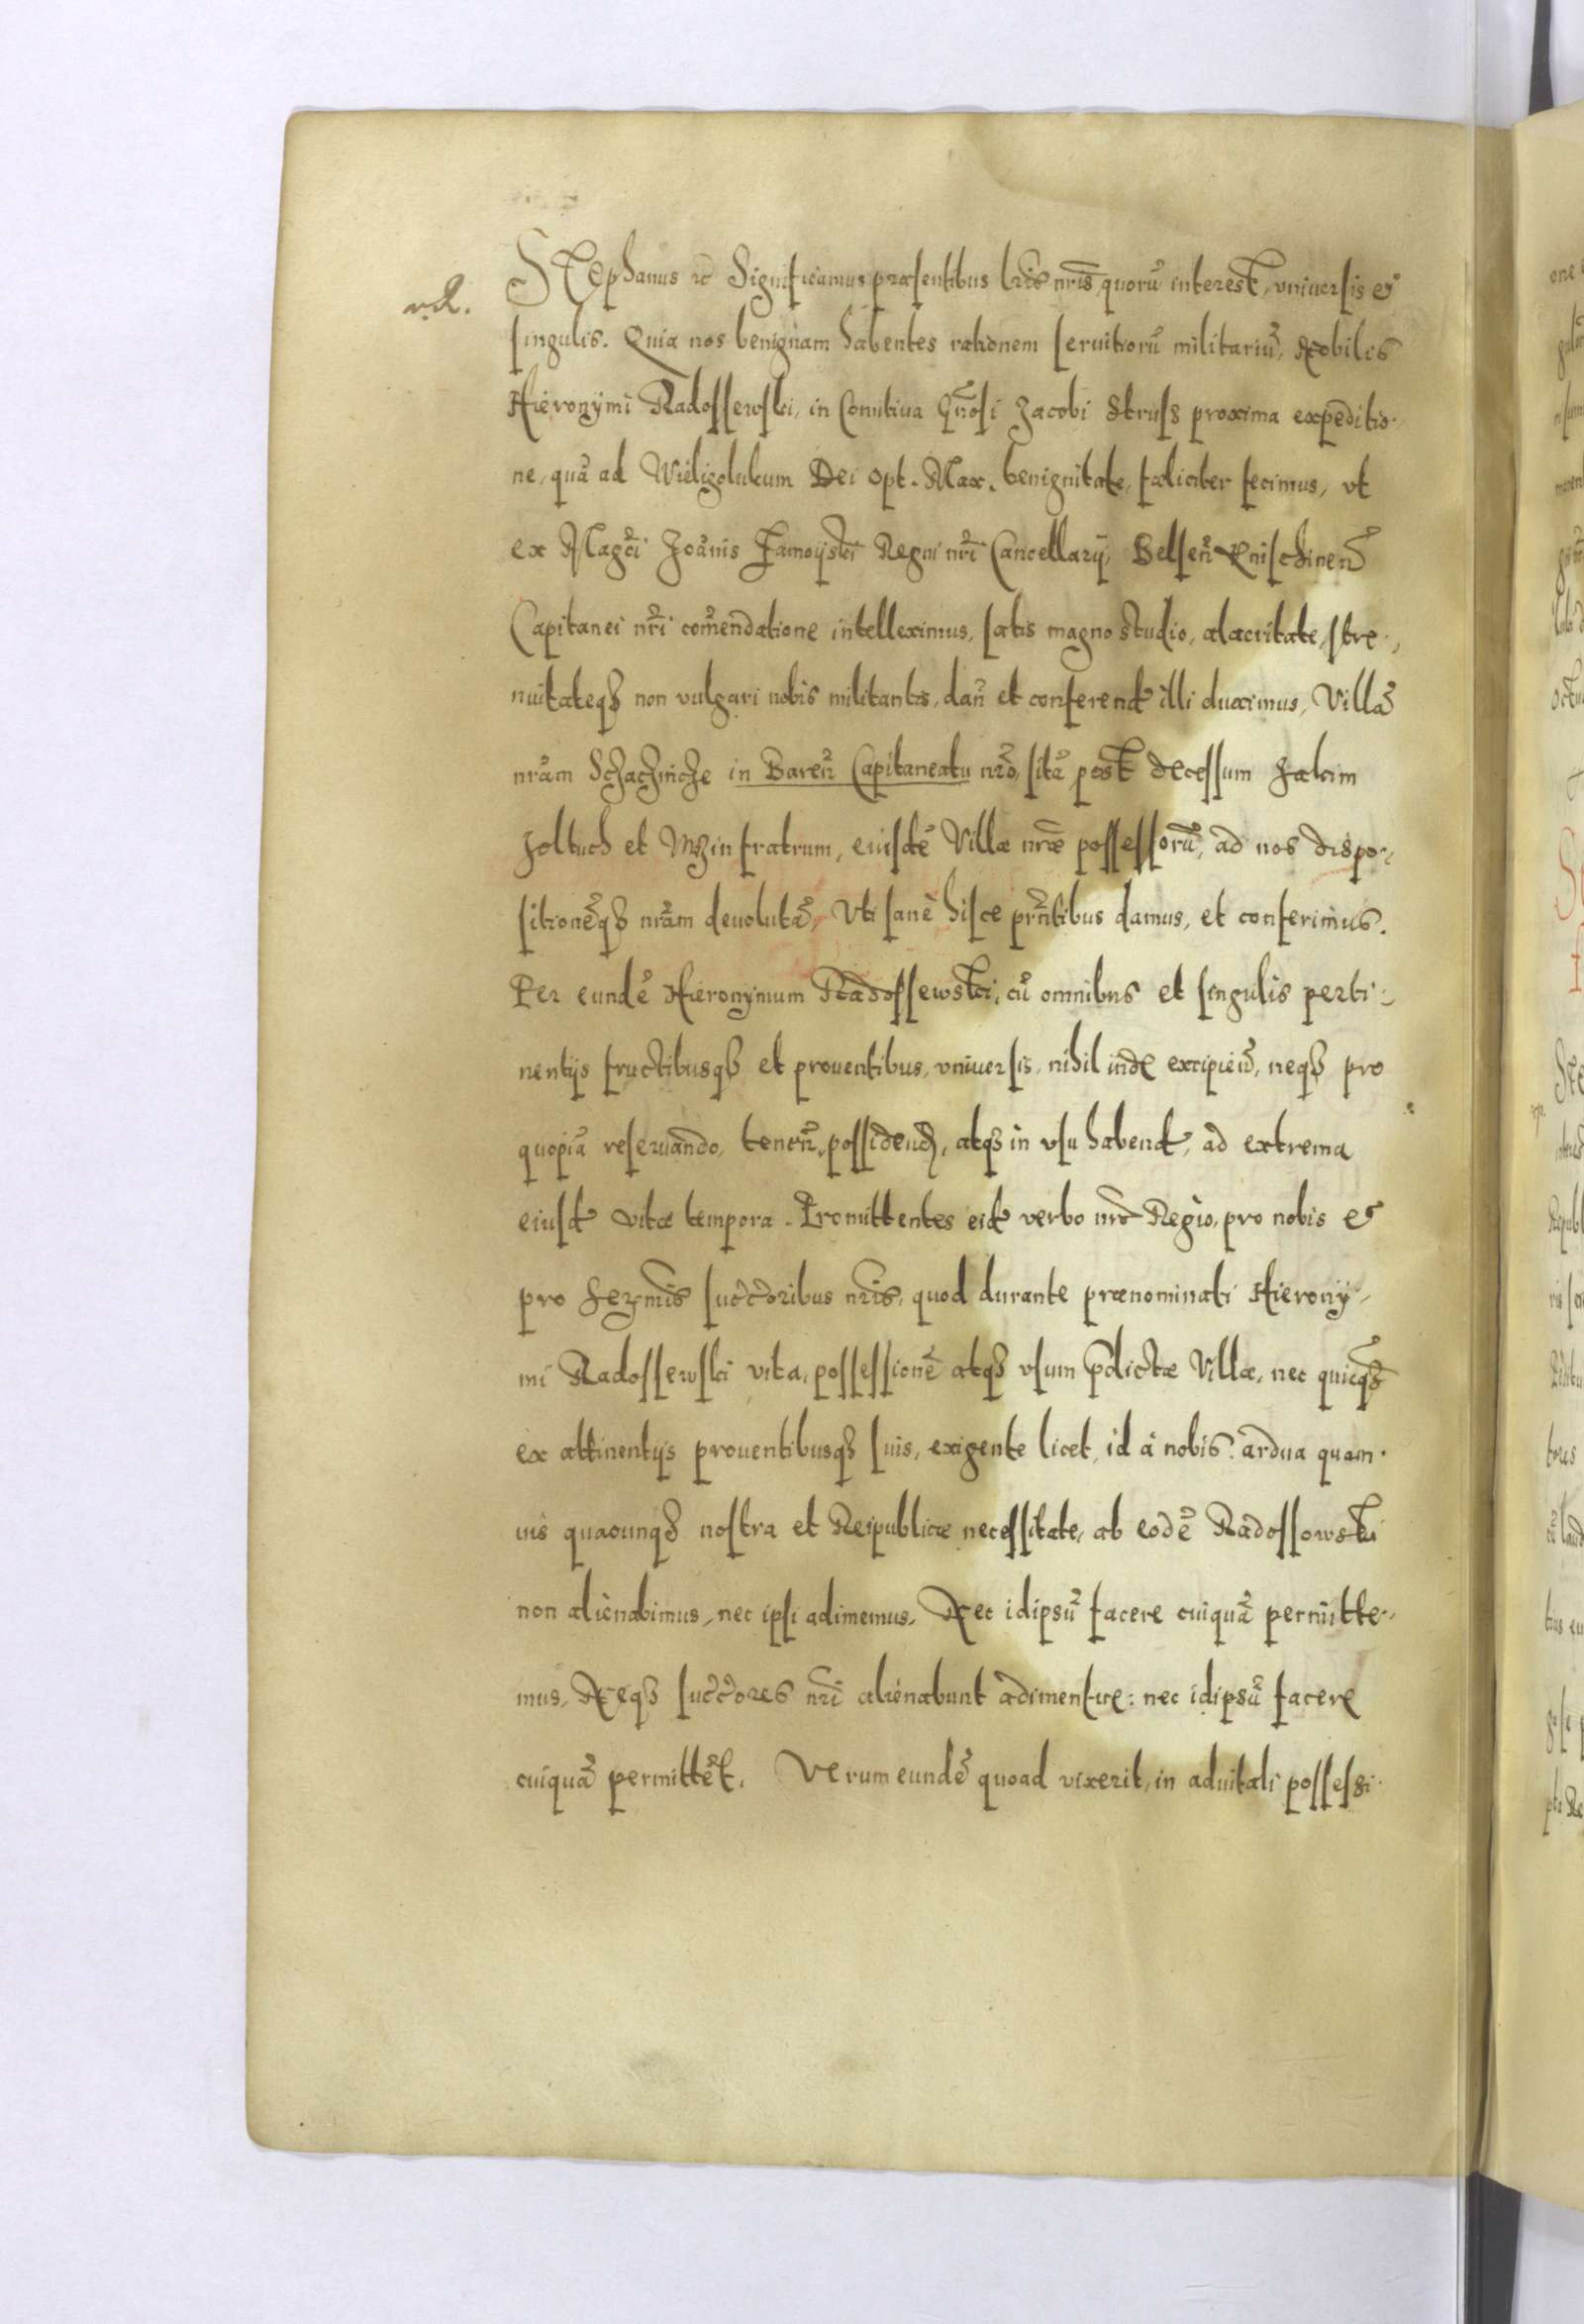 Stephanus etc Significamus præsentibus lris nris, quorũ interest, vniuersis et
singulis. Quia nos benignam habentes rationem seruitiorũ militariũ, Nobilis
Hieronymi Radossewski, in Comitiua Gnosi Jacobi Strusz proxima expeditio-
ne, quã ad Wieligolukum Dei opt. Max. benignitate, fæliciter fecimus, vt
ex Magci Joãnis Zamoyski Regni nri Cancellarij, Belsen Knischinen
Capitanei nri comendatione intelleximus, satis magno studio, alacritate, stre-
nuitateqȝ non vulgari nobis militantis, dañ et conferend illi duximus, Villã
nrãm Schachincze in Baren Capitaneatu nro, sitã post decessum
et fratrum, eiusdẽ Villæ nræ possessorũ, ad nos dispo-
sitionẽqȝ nrãm deuolutã, Vti sanè hisce prñtibus damus, et conferimus.
Per eundẽ Hieronymum Radossewski, cũ omnibus et singulis perti-
nentijs fructibusqȝ et prouentibus, vniuersis, nihil inde excipien, neqȝ pro
quopiã reseruando, tenen, possidend, atqȝ in vsu habend, ad extrema
eiusd vitæ tempora. Promittentes eid verbo nro Regio, pro nobis et
pro Serz̃mis succ̃oribus nris, quod durante prænominati Hierony-
mi Radossewski vita, possessionẽ atqȝ vsum p̃dictæ Villæ, nec quicqȝ
ex attinentijs prouentibusqȝ suis, exigente licet, id à nobis ardua quam-
uis quacunqȝ nostra et Reipublicæ necessitate, ab eodẽ Radossowski
non alienabimus, nec ipsi adimemus. Nec idipsũ facere cuiquã permitte-
mus, Neqȝ succ̃ores nri alienabunt adimentue: nec idipsũ facere
cuiquã permittẽt. Verum eundẽ quoad vixerit, in aduitali possessi-